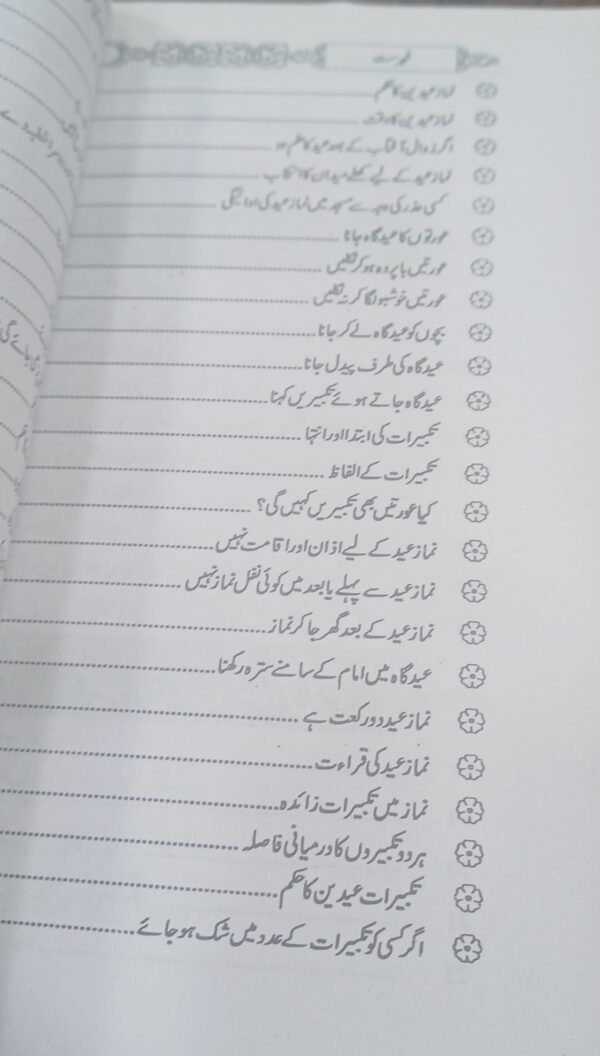 فہرست
نماز عیدین کا حکم
نماز عیدین کا وقت
اگر زوال آفتاب کے بعد عید کا علم ہو
نماز عید کے لیے کھلے میدان کا انتخاب
کسی عذر کی وجہ سے مسجد میں نماز عید کی ادائیگی
عورتوں کا عیدگاہ جانا
عورتیں با پردہ ہو کر نکلیں
عورتیں خوشبو لگا کر نہ نکلیں
بچوں کو عیدگاہ لے کر جانا
عیدگاہ کی طرف پیدل جانا
عیدگاہ جاتے ہوئے تکبیریں کہنا
تکبیرات کی ابتدا اور انتہا
تکبیرات کے الفاظ
کیا عورتیں بھی تکبیریں کہیں گی؟
نماز عید کے لیے اذان اور اقامت نہیں
نماز عید سے پہلے یا بعد میں کوئی نفل نماز نہیں
نماز عید کے بعد گھر جا کر نماز
عیدگاہ میں امام کے سامنے سترہ رکھنا
نماز عید دو رکعت ہے
نماز عید کی قراءت
نماز میں تکبیرات زائدہ
ہر دو تکبیروں کا درمیانی فاصلہ
تکبیرات عیدین کا حکم
اگر کسی کو تکبیرات کے عدد میں شک ہو جائے